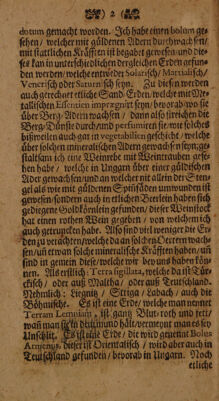 2
dotum gemacht worden. Ich habe einen bolum ge-
sehen / welcher mit güldenen Adern durchwachsen /
mit stattlichen Kräfften ist begabet gewesen / und die-
ses kan in unterschiedlichen dergleichen Erden gefun-
den werden / welche entweder Solarisch / Martialisch /
Venerisch oder Saturnisch seyn. Zu diesen werden
auch gerechnet etliche Sand-Erden, welche mit Me-
tallischen Essentien imprægnirt seyn / bevorab wo sie
über Berg-Adern wachsen / dann also streichen die
Berg-Dünste durch und perfumiren sie mit solches
bißweilen auch gar in vegetabilien geschicht / welche
über solchen mineralischen Adern gewachsen seyn; ge-
staltsam ich eine Weinrebe mit Weintrauben gese-
hen habe / welche in Ungarn über einer güldischen
Ader gewachsen / und an welcher nit allein der Sten-
gel als wie mit güldenen Spinfäden umwunden ist
gewesen / sondern auch in etlichen Beerlein haben sich
gediegene Goldkörnlein gefunden / dieser Weinstock
hat einen rothen Wein gegeben / von welchem ich
auch getruncken habe. Also sind viel weniger die Er-
den zu verachten / welche da an solchen Oertern wach-
sen / und etwan solche mineralische Kräfften haben / und
sind in gemein diese / welche wir bey uns haben kön-
nen. Als erstlich: Terra sigillata, welche da ist Tür-
ckisch / oder auß Maltha / oder auß Teutschland.
Nehmlich: Liegnitz / Striga / Laubach / auch die
Böhmische. Es ist eine Erde / welche man nennet
Terram Lemniam, ist gantz Blut-roth und fett /
wañ man sie in den Mund hält / vermeynt man es sey
Unschlit. Es ist eine Erde / die wird genennt Bolus
Armenus, dieser ist Orientalisch / wird aber auch in
Teutschland gefunden / bevorab in Ungarn. Noch
etliche